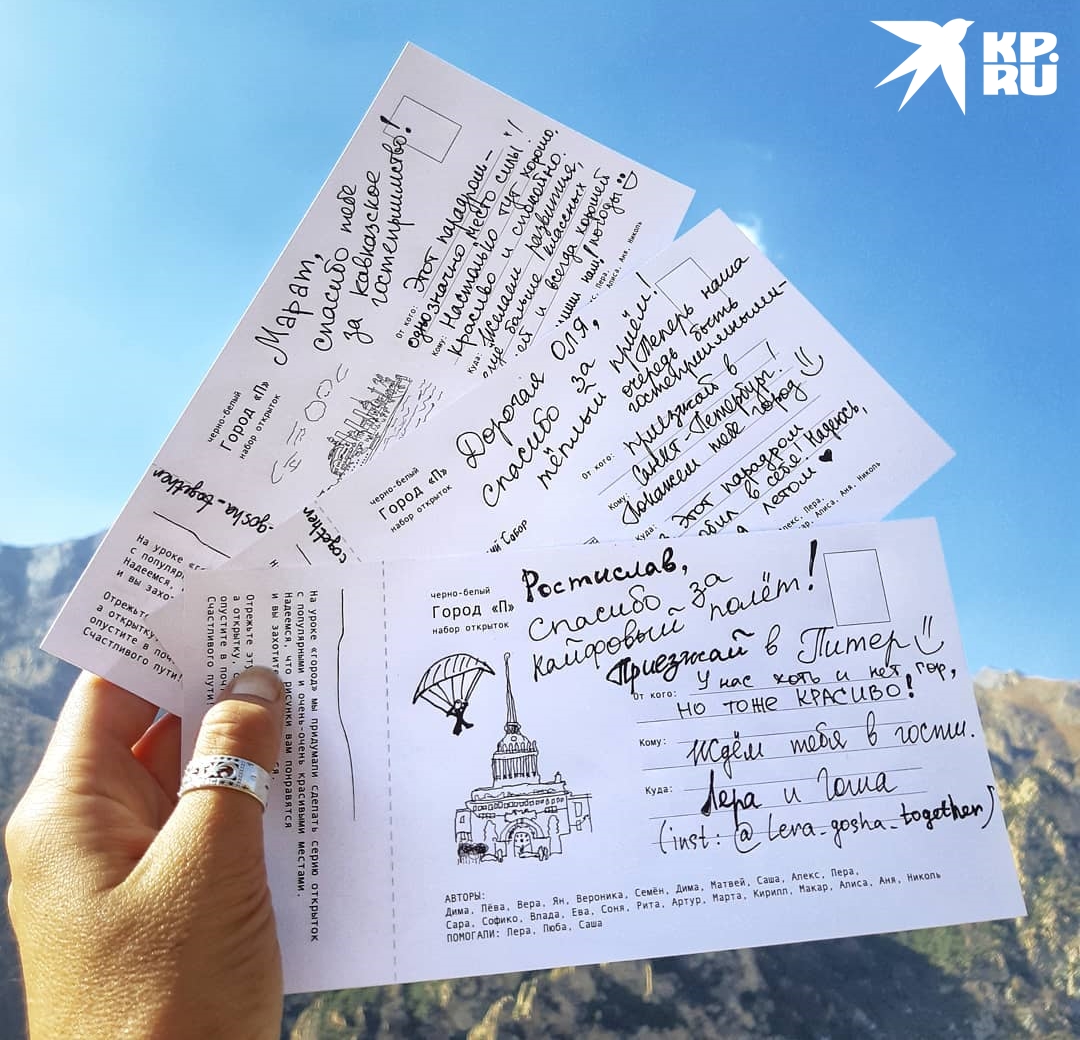 KP.
RU
Марат,
спасибо тебе
за кавказское
гостеприимство!
черно-белый
Город «П»
набор открыток
От кого: Этот парадром –
однозначно место силы!
Кому: Настолько тут хорошо,
красиво и спокойно.
Куда: Желаем развития,
ещё больше классных
и всегда хорошей
погоды
Алиса, Аня, Николь
_gosha_together
На уроке
с популярн
Надеемся,
и вы захо
Отрежьте
а открытку
опустите в поч
Счастливого пути!
Дорогая Оля,
спасибо за
тёплый приём!
Теперь наша
очередь быть
гостеприимными –
черно-белый
Город «П»
набор открыток
От кого: приезжай в
Санкт-Петербург!
Кому: Покажем тебе город
Куда: Этот парадром
в себя! Надеюсь,
летом ♥
Алекс, Пера,
Алиса, Аня, Николь
together
Собор
Ростислав,
спасибо за
кайфовый полёт!
Приезжай в Питер
черно-белый
Город «П»
набор открыток
От кого: У нас хоть и нет гор,
но тоже КРАСИВО!
Кому: Ждём тебя в гости.
Куда: Лера и Гоша
(inst: @lera_gosha_together)
АВТОРЫ:
Дима, Лёва, Вера, Ян, Вероника, Семён, Дима, Матвей, Саша, Алекс, Лера,
Сара, Софико, Влада, Ева, Соня, Рита, Артур, Марта, Кирилл, Макар, Алиса, Аня, Николь
ПОМОГАЛИ: Лера, Люба, Саша
На уроке «город» мы придумали сделать серию открыток
с популярными и очень-очень красивыми местами.
Надеемся, что рисунки вам понравятся
и вы захотите
Отрежьте эту
а открытку,
опустите в поч
Счастливого пути!